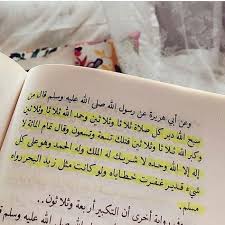 وعن أبي هريرة عن رسول الله صلى الله عليه وسلم قال من
سبح الله دبر كل صلاة ثلاثا وثلاثين وحمد الله ثلاثا وثلاثين
وكبر الله ثلاثا وثلاثين فتلك تسعة وتسعون وقال تمام المائة لا
إله إلا الله وحده لا شريك له له الملك وله الحمد وهو على كل
شيء قدير غفرت خطاياه ولو كانت مثل زبد البحر رواه
مسلم.
وفي رواية أخرى أن التكبير أربعة وثلاثون..